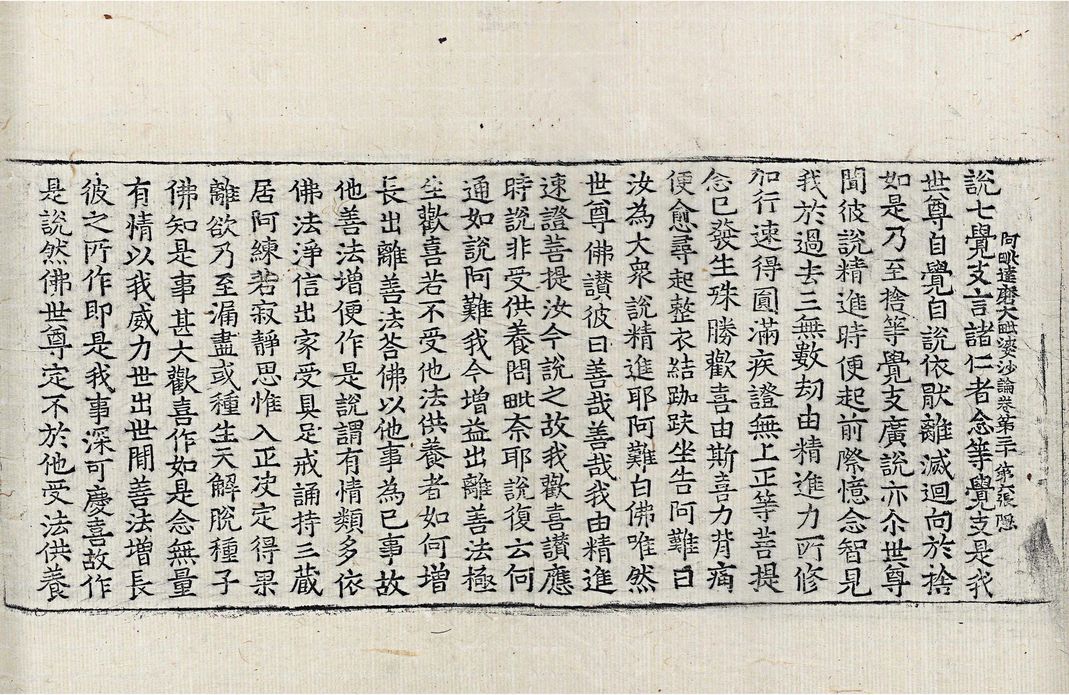 阿毗達磨大毗婆沙論卷第三十 第六張 隱
說七覺支言諸仁者念等覺支是我
世尊自覺自說依猒離滅迴向於捨
如是乃至捨等覺支廣說亦尒世尊
聞彼說精進時便起前際憶念智見
我於過去三無數劫由精進力所修
加行速得圓滿疾證無上正等菩提
念已發生殊勝歡喜由斯喜力背痛
便愈尋起整衣結跏趺坐告阿難曰
汝為大衆說精進耶阿難白佛唯然
世尊佛讚彼曰善哉善哉我由精進
速證菩提汝今說之故我歡喜讚應
時說非受供養問毗奈耶說復云何
通如說阿難我今增益出離善法極
生歡喜若不受他法供養者如何增
長出離善法荅佛以他事為己事故
他善法增便作是說謂有情類多依
佛法淨信出家受具足戒誦持三藏
居阿練若寂靜思惟入正決定得果
離欲乃至漏盡或種生天解脫種子
佛知是事甚大歡喜作如是念無量
有情以我威力世出世閒善法增長
彼之所作即是我事深可慶喜故作
是說然佛世尊定不於他受法供養